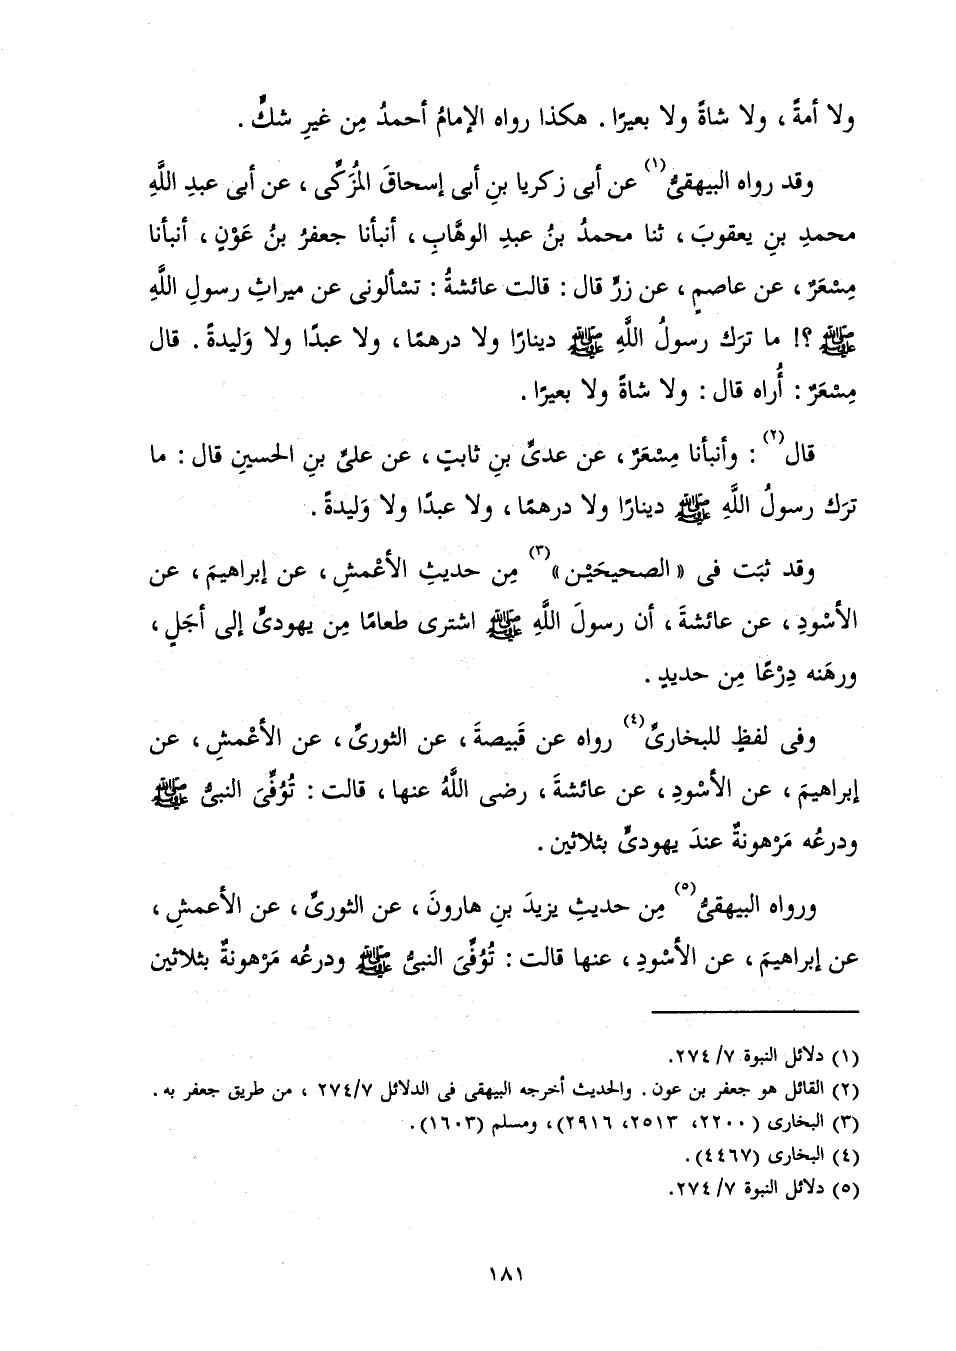 ولا أمةً ، ولا شاةً ولا بعيرًا . هكذا رواه الإمامُ أحمدُ مِن غيرِ شكٍّ .
وقد رواه البيهقىُّ(١) عن أبى زكريا بنِ أبى إسحاقَ المُزَكِّى ، عن أبى عبدِ اللَّهِ
محمدِ بنِ يعقوبَ ، ثنا محمدُ بنُ عبدِ الوهَّابِ ، أنبأنا جعفرُ بنُ عَوْنٍ ، أنبأنا
مِسْعَرٌ ، عن عاصمٍ ، عن زرٍّ قال : قالت عائشةُ : تسْألونى عن ميراثِ رسولِ اللَّهِ
ﷺ ؟! ما ترَك رسولُ اللَّهِ ﷺ دينارًا ولا درهمًا ، ولا عبدًا ولا وَليدةً . قال
مِسْعَرٌ : أُراه قال : ولا شاةً ولا بعيرًا .
قال(٢) : وأنبأنا مِسْعَرٌ ، عن عدىِّ بنِ ثابتٍ ، عن علىِّ بنِ الحسينِ قال : ما
ترَك رسولُ اللَّهِ ﷺ دينارًا ولا درهمًا ، ولا عبدًا ولا وَليدةً .
وقد ثبَت فى « الصحيحَيْن »(٣) مِن حديثِ الأعْمشِ ، عن إبراهيمَ ، عن
الأسْودِ ، عن عائشةَ ، أن رسولَ اللَّهِ ﷺ اشترى طعامًا مِن يهودىٍّ إلى أجَلٍ ،
ورهَنه دِرْعًا مِن حديدٍ .
وفى لفظٍ للبخارىِّ(٤) رواه عن قَبيصةَ ، عن الثورىِّ ، عن الأعْمشِ ، عن
إبراهيمَ ، عن الأسْودِ ، عن عائشةَ ، رضى اللَّهُ عنها ، قالت : تُوُفِّىَ النبىُّ ﷺ
ودرعُه مَرْهونةٌ عندَ يهودىٍّ بثلاثين .
ورواه البيهقىُّ(٥) مِن حديثِ يزيدَ بنِ هارونَ ، عن الثورىِّ ، عن الأعمشِ ،
عن إبراهيمَ ، عن الأسْودِ ، عنها قالت : تُوُفِّىَ النبىُّ ﷺ ودرعُه مَرْهونةٌ بثلاثين
(١) دلائل النبوة ٧/ ٢٧٤.
(٢) القائل هو جعفر بن عون . والحديث أخرجه البيهقى فى الدلائل ٧/ ٢٧٤ ، من طريق جعفر به .
(٣) البخارى ( ٢٢٠٠، ٢٥١٣، ٢٩١٦)، ومسلم (١٦٠٣).
(٤) البخارى (٤٤٦٧).
(٥) دلائل النبوة ٧/ ٢٧٤.
١٨١